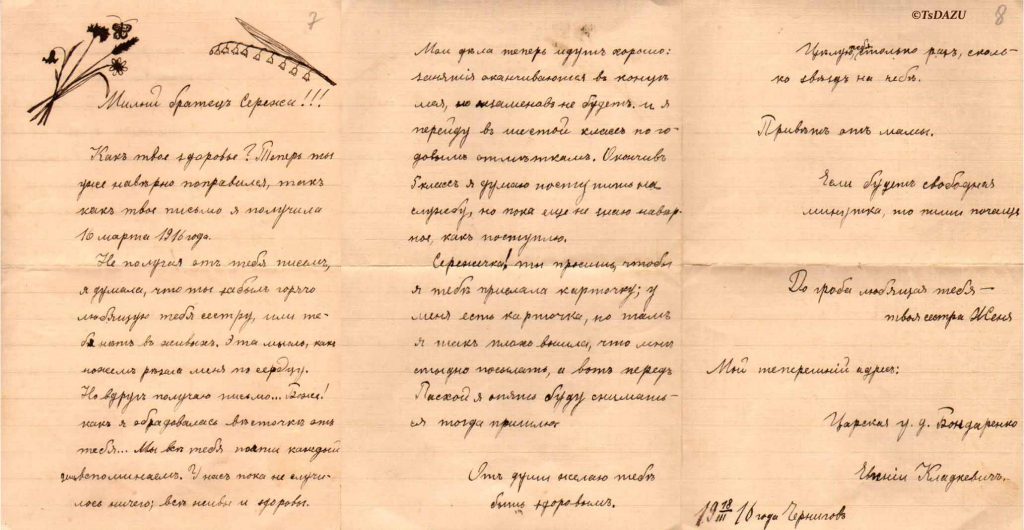 7
Милый братецъ Сережа!!!
Какъ твое здоровье? Теперь ты
уже навѣрно поправился, такъ
какъ твое письмо я получила
16 марта 1916 года.
Не получая отъ тебя писемъ,
я думала, что ты забылъ горячо
любящую тебя сестру, или те-
бя нѣтъ въ живыхъ. Эта мысль, какъ
ножемъ рѣзала меня по сердцу.
Но вдругъ получаю письмо... Боже!
какъ я обрадовалась вѣсточкѣ отъ
тебя... Мы всѣ тебя почти каждый
день вспоминаемъ. У насъ пока не случи-
лось ничего; всѣ живы и здоровы.
Мои дѣла теперь идутъ хорошо:
занятія оканчиваются въ концѣ
мая, но экзаменовъ не будетъ. и я
перейду въ шестой классъ по го-
довымъ отмѣткамъ. Окончивъ
5 классъ я думаю поступить на
службу, но пока еще не знаю навѣр-
ное, какъ поступлю.
Сережечка! ты просишь, чтобы
я тебѣ прислала карточку; у
меня есть карточка, но тамъ
я такъ плохо вышла, что мнѣ
стыдно посылать, а вотъ передъ
Пасхой я опять буду снимать-
ся тогда пришлю.
Отъ души желаю тебѣ
быть здоровымъ.
©TsDAZU
8
Цѣлую тебя столько разъ, сколь-
ко звѣздъ на небѣ.
Привѣтъ отъ мамы.
Если будетъ свободная
минутка, то пиши почаще
До гроба любящая тебя —
твоя сестра Женя
Мой теперешній адрес:
Царская у. д. Бондаренко
Евгеніи Кладкевичъ.
19 18/III 16 года Черниговъ